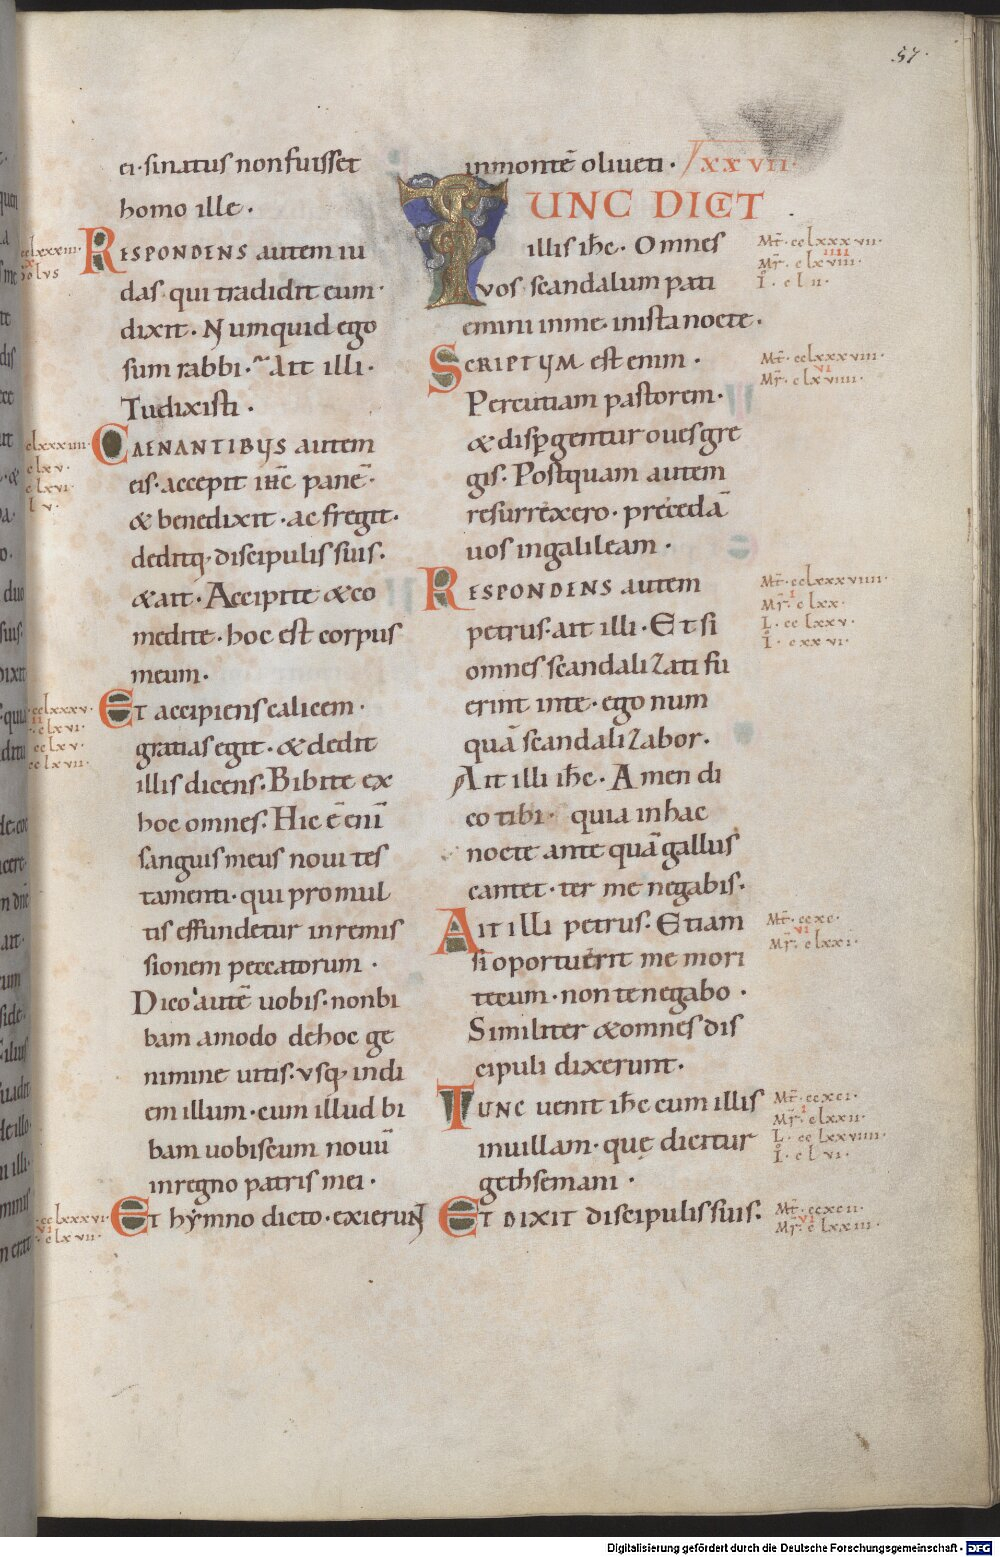 57
ei. sinatus non fuisset
homo ille.
RESPONDENS autem iu
das. qui tradidit eum.
dixit. Numquid ego
sum rabbi. Ait illi.
Tu dixisti.
CAENANTIBUS autem
eis. accepit ihc̄ panē.
& benedixit. ac fregit.
deditq; discipulis suis.
& ait. Accipite & co
medite. hoc est corpus
meum.
ET accipiens calicem.
gratias egit. & dedit
illis dicens. Bibite ex
hoc omnes. Hic ē enī
sanguis meus noui tes
tamenti. qui pro mul
tis effundetur in remis
sionem peccatorum.
Dico autē uobis. non bi
bam amodo de hoc ge
nimine uitis. usq; in di
em illum. cum illud bi
bam uobiscum nouū
in regno patris mei.
ET hẏmno dicto. exierunt
in montē oliueti. LXXVII.
TUNC DICIT
illis ihc̄. Omnes
uos scandalum pati
emini in me. in ista nocte.
SCRIPTUM est enim.
Percutiam pastorem.
& disp̱gentur oues gre
gis. Postquam autem
resurrexero. precedā
uos in galileam.
RESPONDENS autem
petrus. ait illi. Et si
omnes scandalizati fu
erint in te. ego num
quā scandalizabor.
Ait illi ihc̄. Amen di
co tibi. quia in hac
nocte ante quā gallus
cantet. ter me negabis.
AIT illi petrus. Etiam
si oportuerit me mori
tecum. non te negabo.
Similiter & omnes dis
cipuli dixerunt.
TUNC uenit ihc̄ cum illis
in uillam. quę dicitur
gethsemani.
ET DIXIT discipulis suis.
Mt̄. cclxxxvii.
Mr̄. clxviii.
iiii
I. clii.
Mt̄. cclxxxviii.
vi
Mr̄. clxviiii.
Mt̄. cclxxxviiii.
i
Mr̄. clxx.
L. cclxxv.
I. cxxvi.
Mt̄. ccxc.
vi
Mr̄. clxxi.
Mt̄. ccxci.
i
Mr̄. clxxii.
L. cclxxviiii.
I. clvi.
Mt̄. ccxcii.
vi
Mr̄. clxxiii.
Digitalisierung gefördert durch die Deutsche Forschungsgemeinschaft - DFG